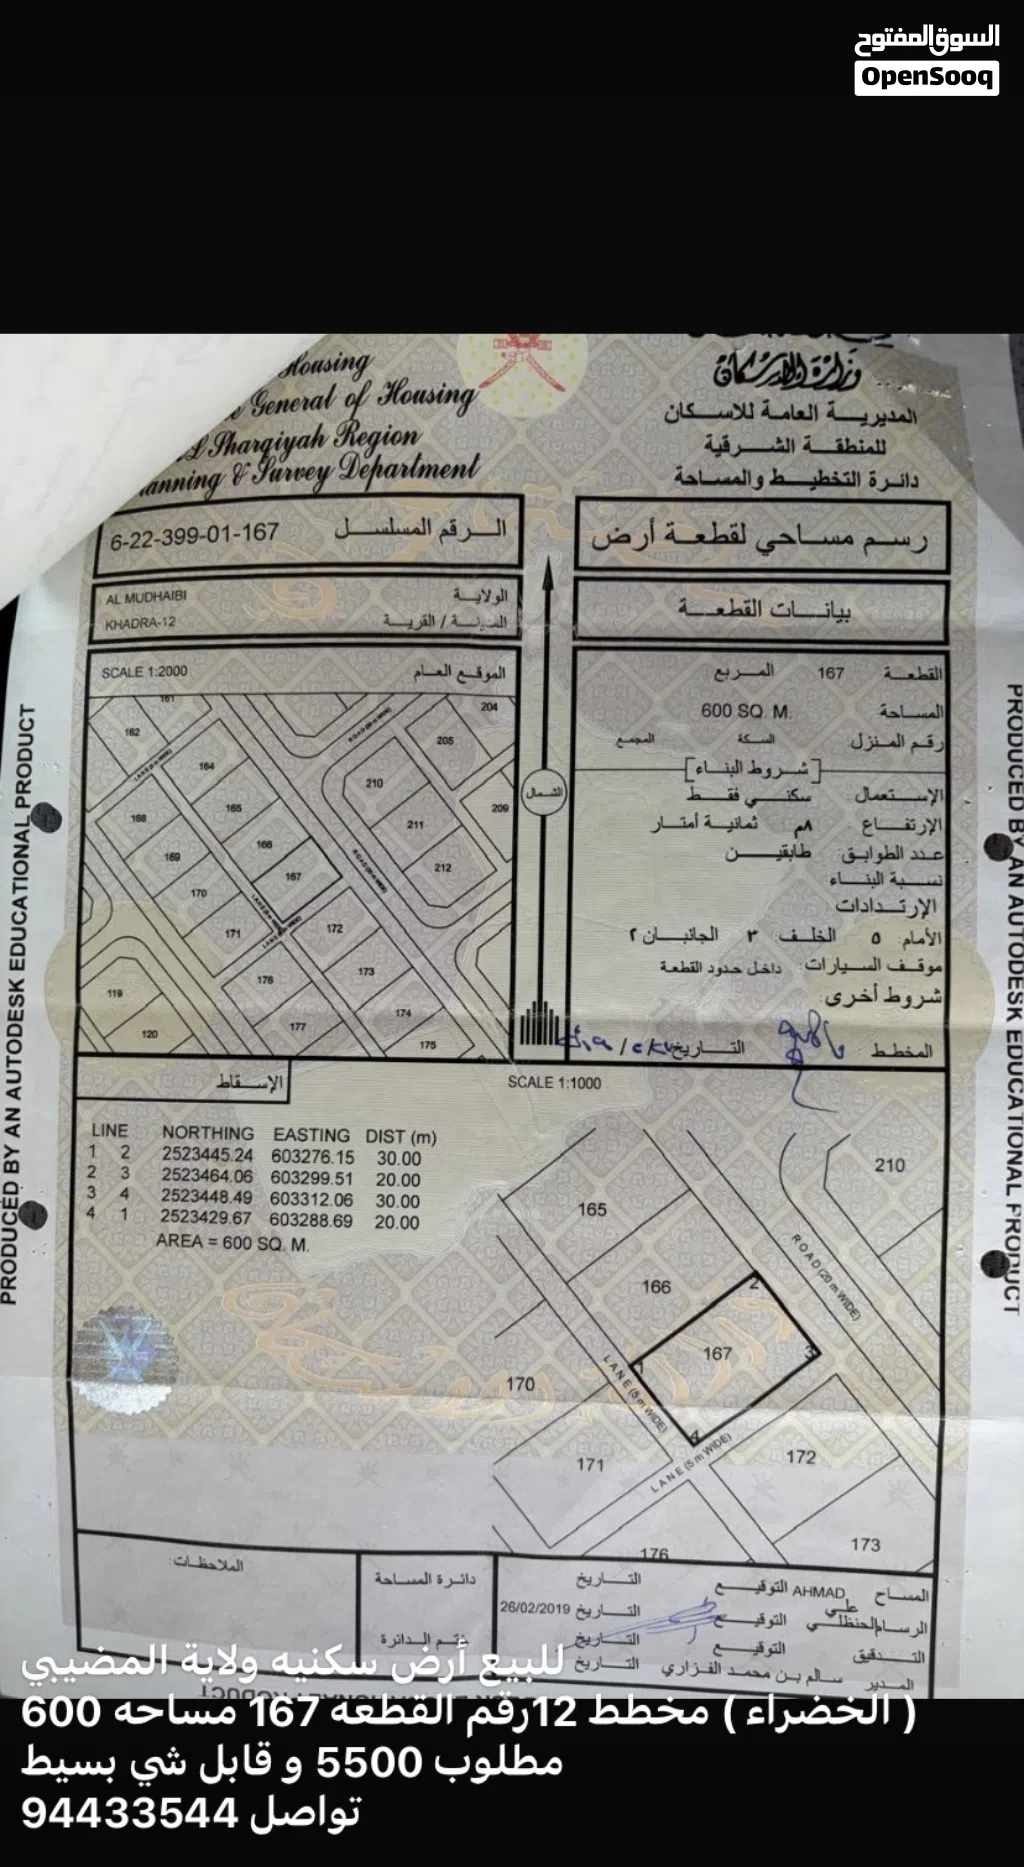 السوق المفتوح
OpenSooq
Housing
General of Housing
Sharqiyah Region
Planning & Survey Department
وزارة الإسكان
المديرية العامة للاسكان
للمنطقة الشرقية
دائرة التخطيط والمساحة
الرقم المسلسل 6-22-399-01-167
رسم مساحي لقطعة أرض
الولاية AL MUDHAIBI
المدينة / القرية KHADRA-12
بيانات القطعة
SCALE 1:2000 الموقع العام
161
162
LANE (5 m WIDE)
164
165
166
167
168
169
170
171
LANE (5 m WIDE)
LANE (5 m WIDE)
172
173
174
175
176
177
119
120
ROAD (20 m WIDE)
ROAD (20 m WIDE)
204
205
209
210
211
212
الشمال
القطعة 167 المربع
المساحة 600 SQ. M.
رقم المنزل السكة المجمع
[شروط البناء]
الإستعمال سكني فقط
الإرتفاع ٨م ثمانية أمتار
عدد الطوابق طابقين
نسبة البناء
الإرتدادات
الأمام ٥ الخلف ٣ الجانبان ٢
موقف السيارات: داخل حدود القطعة
شروط أخرى
المخطط التاريخ
الإسقاط
SCALE 1:1000
LINE NORTHING EASTING DIST (m)
1 2 2523445.24 603276.15 30.00
2 3 2523464.06 603299.51 20.00
3 4 2523448.49 603312.06 30.00
4 1 2523429.67 603288.69 20.00
AREA = 600 SQ. M.
165
166
167
1
2
3
4
170
171
172
173
176
210
ROAD (20 m WIDE)
LANE (5 m WIDE)
LANE (5 m WIDE)
الملاحظات:
دائرة المساحة
ختم الدائرة
المساح AHMAD التوقيع التاريخ
الرسام علي الحنظلي التوقيع التاريخ 26/02/2019
التدقيق التوقيع التاريخ
المدير سالم بن محمد الفزاري التاريخ
PRODUCED BY AN AUTODESK EDUCATIONAL PRODUCT
PRODUCED BY AN AUTODESK EDUCATIONAL PRODUCT
للبيع أرض سكنيه ولاية المضيبي
( الخضراء ) مخطط 12رقم القطعه 167 مساحه 600
مطلوب 5500 و قابل شي بسيط
تواصل 94433544